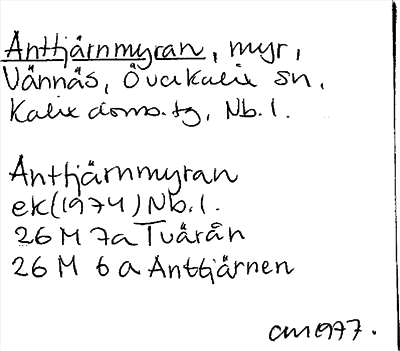 Anttjärnmyran, myr,
Vännäs, Överkalix sn,
Kalix doms.tg, Nb.l.
Anttjärnmyran
ek(1974)Nb.l.
26 M 7a Tvärån
26 M 6a Anttjärnen
am 1977.